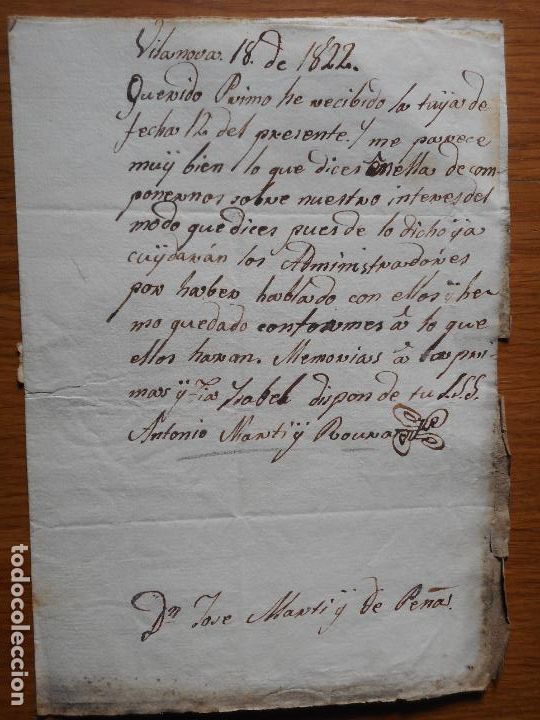 Vilanova 18. de 1822.
Querido Primo he recibido la tuya de
fecha 12 del presente. y me parece
muy bien lo que dices en ella de com-
ponernos sobre nuestro interes del
modo que dices pues de lo dicho ya
cuydarán los Administradores
por haber hablado con ellos y he-
mo quedado conformes â lo que
ellos haran. Memorias â las pri-
mas y tia Isabel dispon de tu S.S.S.
Antonio Marti y Roura
Dn Jose Marti y de Peñas.
todocoleccion